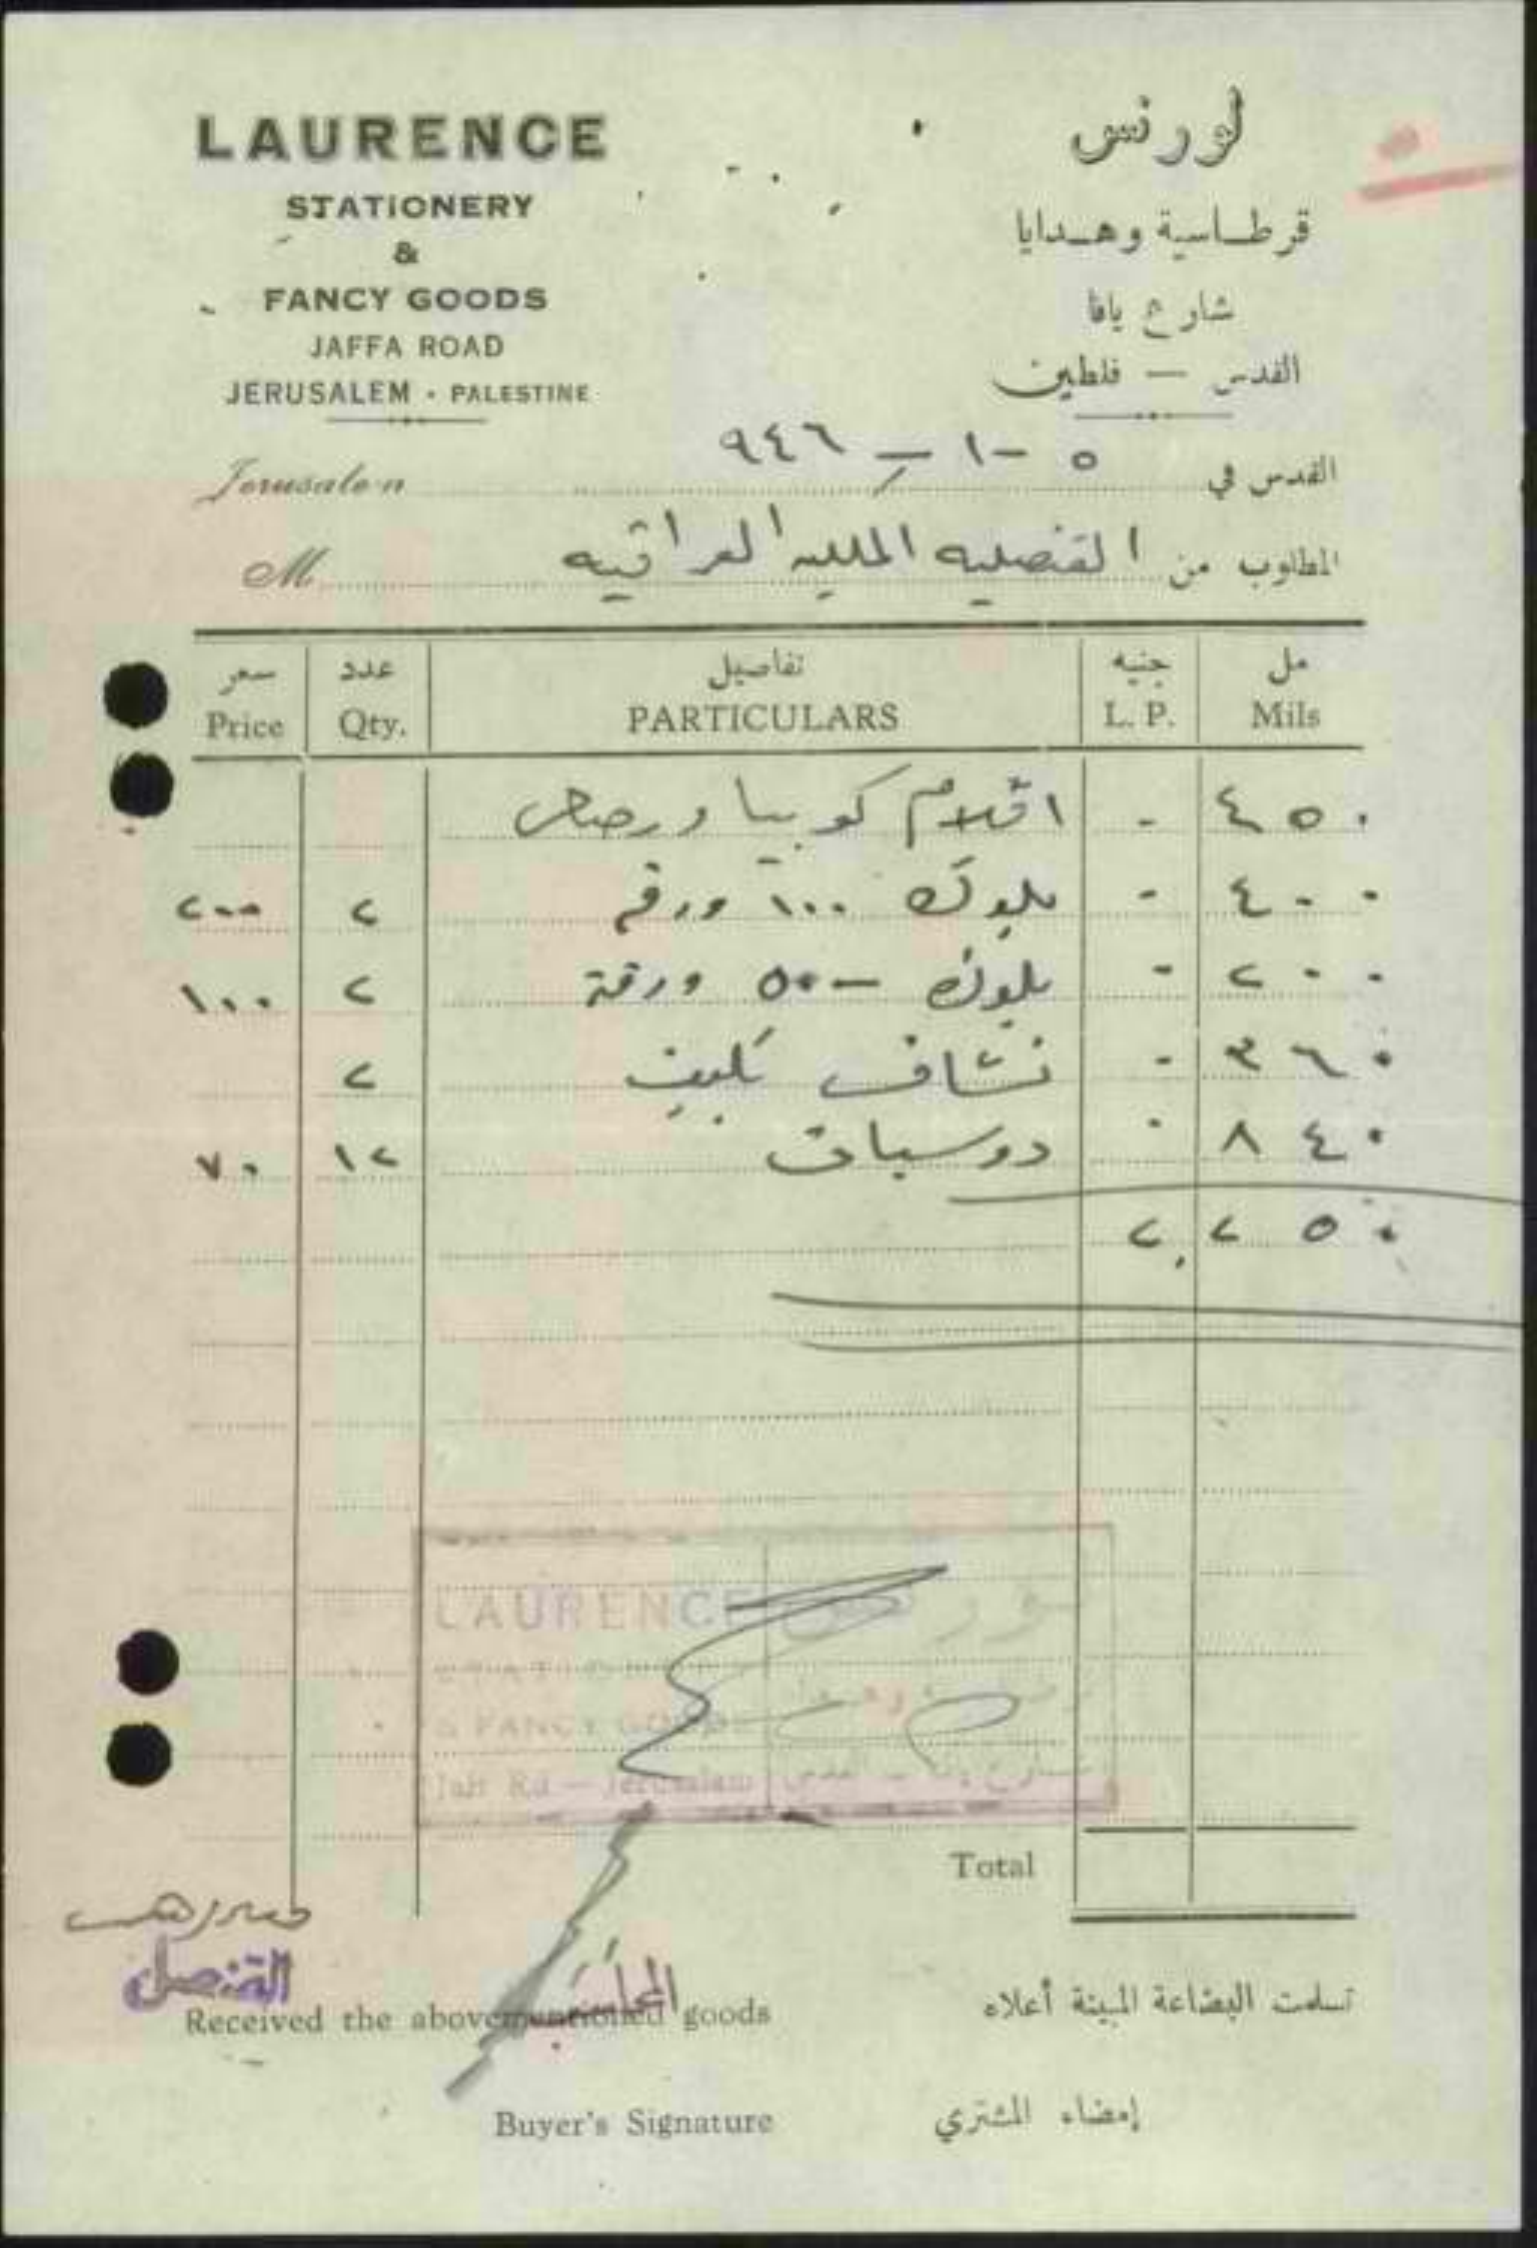 LAURENCE
STATIONERY
&
FANCY GOODS
JAFFA ROAD
JERUSALEM - PALESTINE
لورنس
قرطاسية وهدايا
شارع يافا
القدس — فلطين
Jerusalem ٥ - ١ - ٩٤٦ القدس في
M القنصليه الملكيه العراقيه المطلوب من
سعر عدد تفاصيل جنيه مل
Price Qty. PARTICULARS L. P. Mils
اقلام كوبيا ورصاص - ٤٥٠
٢٠٠ ٢ بلوك ١٠٠ ورقه - ٤٠٠
١٠٠ ٢ بلوك - ٥٠ ورقة - ٢٠٠
٢ نشاف - ٣٦٠
٧٠ ١٢ دوسيات - ٨٤٠
٢,٢٥٠
LAURENCE
STATIONERY
& FANCY GOODS
Jaff Rd — Jerusalem
شارع يافا - القدس
Total
القنصل
المحاسب
Received the abovementioned goods تسلمت البضاعة المبينة أعلاه
Buyer's Signature إمضاء المشتري